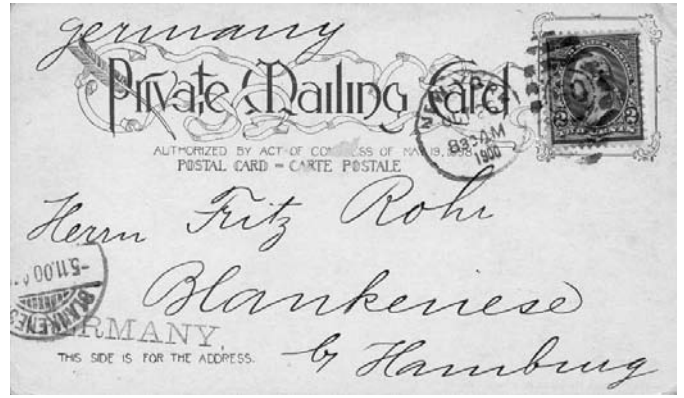 Germany
Private Mailing Card
AUTHORIZED BY ACT OF CONGRESS OF MAY 19, 1898.
POSTAL CARD - CARTE POSTALE
830AM
1900
Herrn Fritz Rohr
Blankenese
b/ Hamburg
-5.11.00
BLANKENESE
GERMANY.
THIS SIDE IS FOR THE ADDRESS.